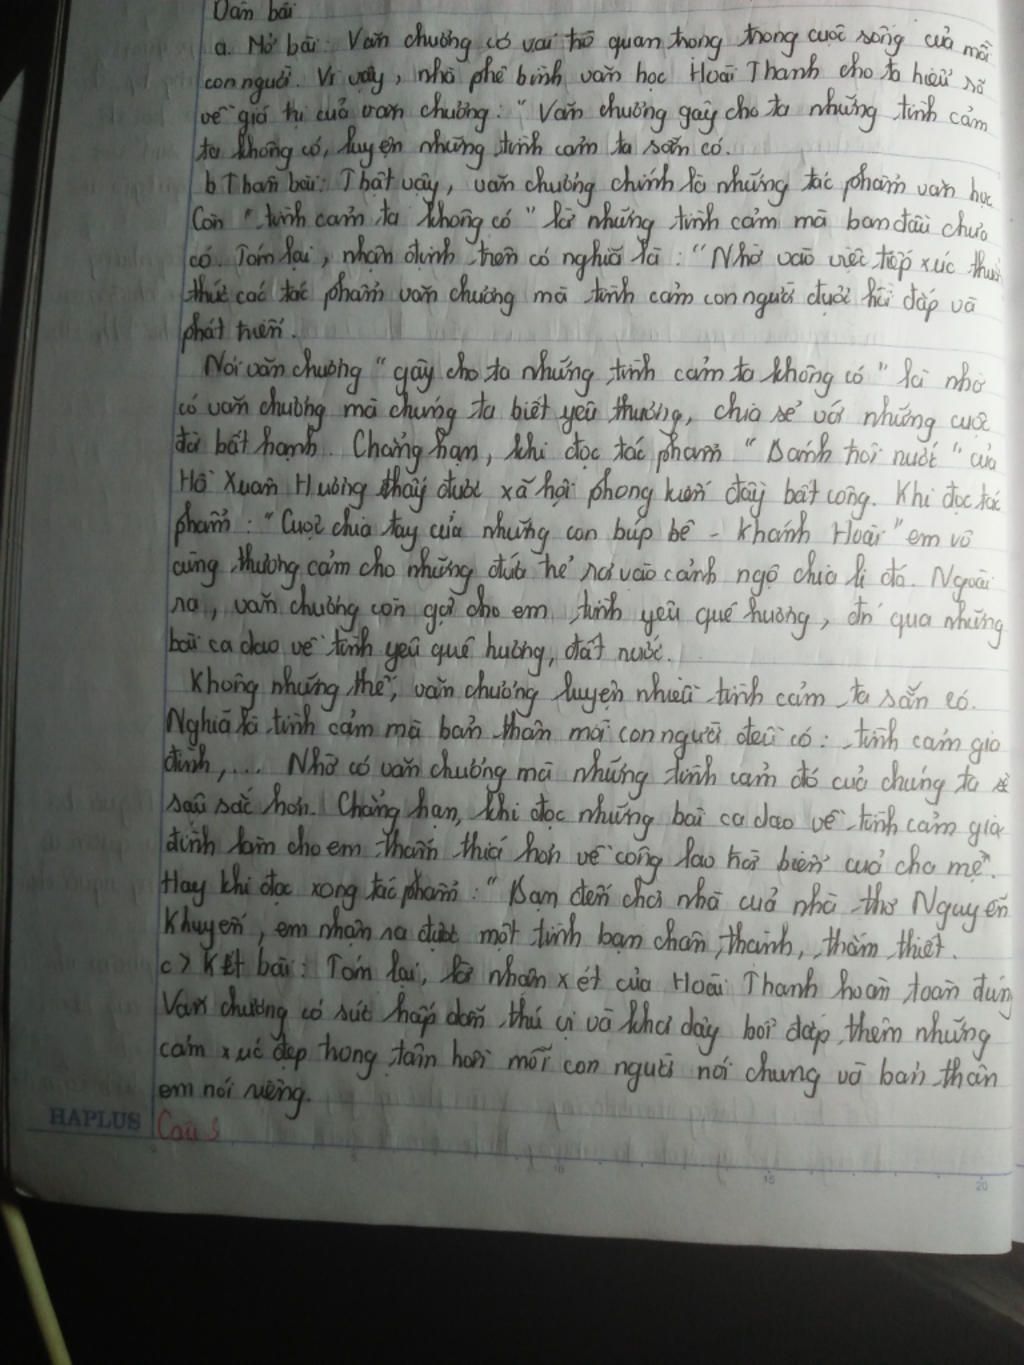 Dàn bài
a. Mở bài: Văn chương có vai trò quan trọng trong cuộc sống của mỗi
con người. Vì vậy, nhà phê bình văn học Hoài Thanh cho ta hiểu rõ
về giá trị của văn chương: "Văn chương gây cho ta những tình cảm
ta không có, luyện những tình cảm ta sẵn có.
b Thân bài: Thật vậy, văn chương chính là những tác phẩm văn học
Còn "tình cảm ta không có" là những tình cảm mà ban đầu chưa
có. Tóm lại, nhận định trên có nghĩa là: "Nhờ vào việc tiếp xúc thưởng
thức các tác phẩm văn chương mà tình cảm con người được bồi đắp và
phát triển.
Nói văn chương "gây cho ta những tình cảm ta không có" là nhờ
có văn chương mà chúng ta biết yêu thương, chia sẻ với những cuộc
đời bất hạnh. Chẳng hạn, khi đọc tác phẩm "Bánh trôi nước" của
Hồ Xuân Hương thấy được xã hội phong kiến đầy bất công. Khi đọc tác
phẩm: "Cuộc chia tay của những con búp bê - Khánh Hoài" em vô
cùng thương cảm cho những đứa trẻ rơi vào cảnh ngộ chia li đó. Ngoài
ra, văn chương còn gợi cho em tình yêu quê hương, qua những
bài ca dao về tình yêu quê hương, đất nước.
Không những thế, văn chương luyện nhiều tình cảm ta sẵn có.
Nghĩa là tình cảm mà bản thân mỗi con người đều có: tình cảm gia
đình,... Nhờ có văn chương mà những tình cảm đó của chúng ta sẽ
sâu sắc hơn. Chẳng hạn, khi đọc những bài ca dao về tình cảm gia
đình làm cho em thấm thía hơn về công lao trời biển của cha mẹ.
Hay khi đọc xong tác phẩm: "Bạn đến chơi nhà của nhà thơ Nguyễn
Khuyến, em nhận ra được một tình bạn chân thành, thắm thiết.
c> Kết bài: Tóm lại, lời nhận xét của Hoài Thanh hoàn toàn đúng
Văn chương có sức hấp dẫn thú vị và khơi dậy bồi đắp thêm những
cảm xúc đẹp trong tâm hồn mỗi con người nói chung và bản thân
em nói riêng.
HAPLUS Câu 5
10 15 20